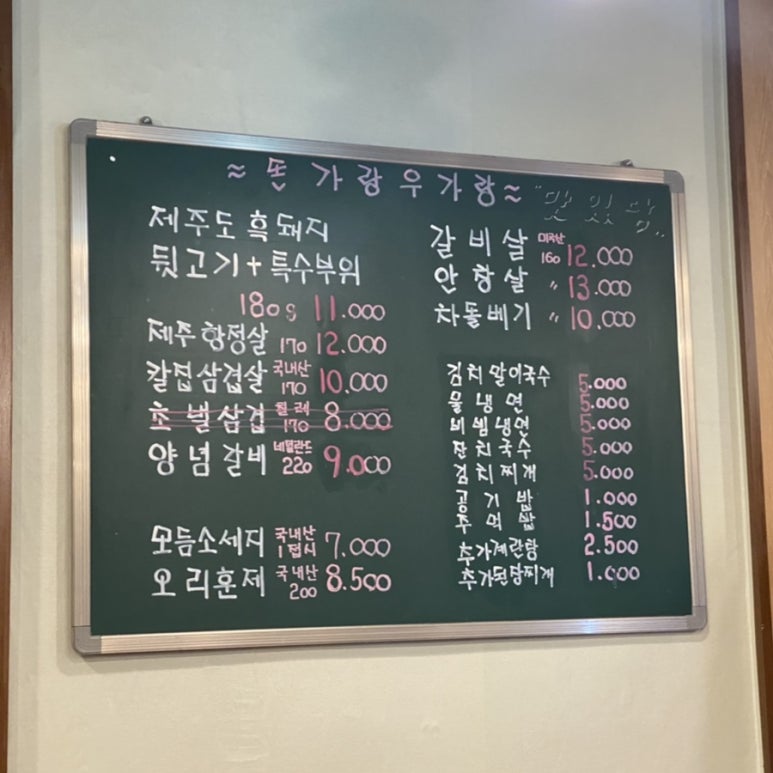 ≈ 똔 가랑우가랑 ≈ "맛있담"
제주도 흑돼지
뒷고기+특수부위
180g 11.000
제주항정살 170 12.000
칼집삼겹살 국내산 170 10.000
초벌삼겹 칠레 170 8.000
양념갈비 네덜란드 220 9.000
모듬소세지 국내산 1접시 7.000
오리훈제 국내산 200 8.500
갈비살 미국산 160 12.000
안창살 " 13.000
차돌베기 " 10.000
김치말이국수 5.000
물냉면 5.000
비빔냉면 5.000
잔치국수 5.000
김치찌개 5.000
공기밥 1.000
주먹밥 1.500
추가계란탕 2.500
추가된장찌개 1.000